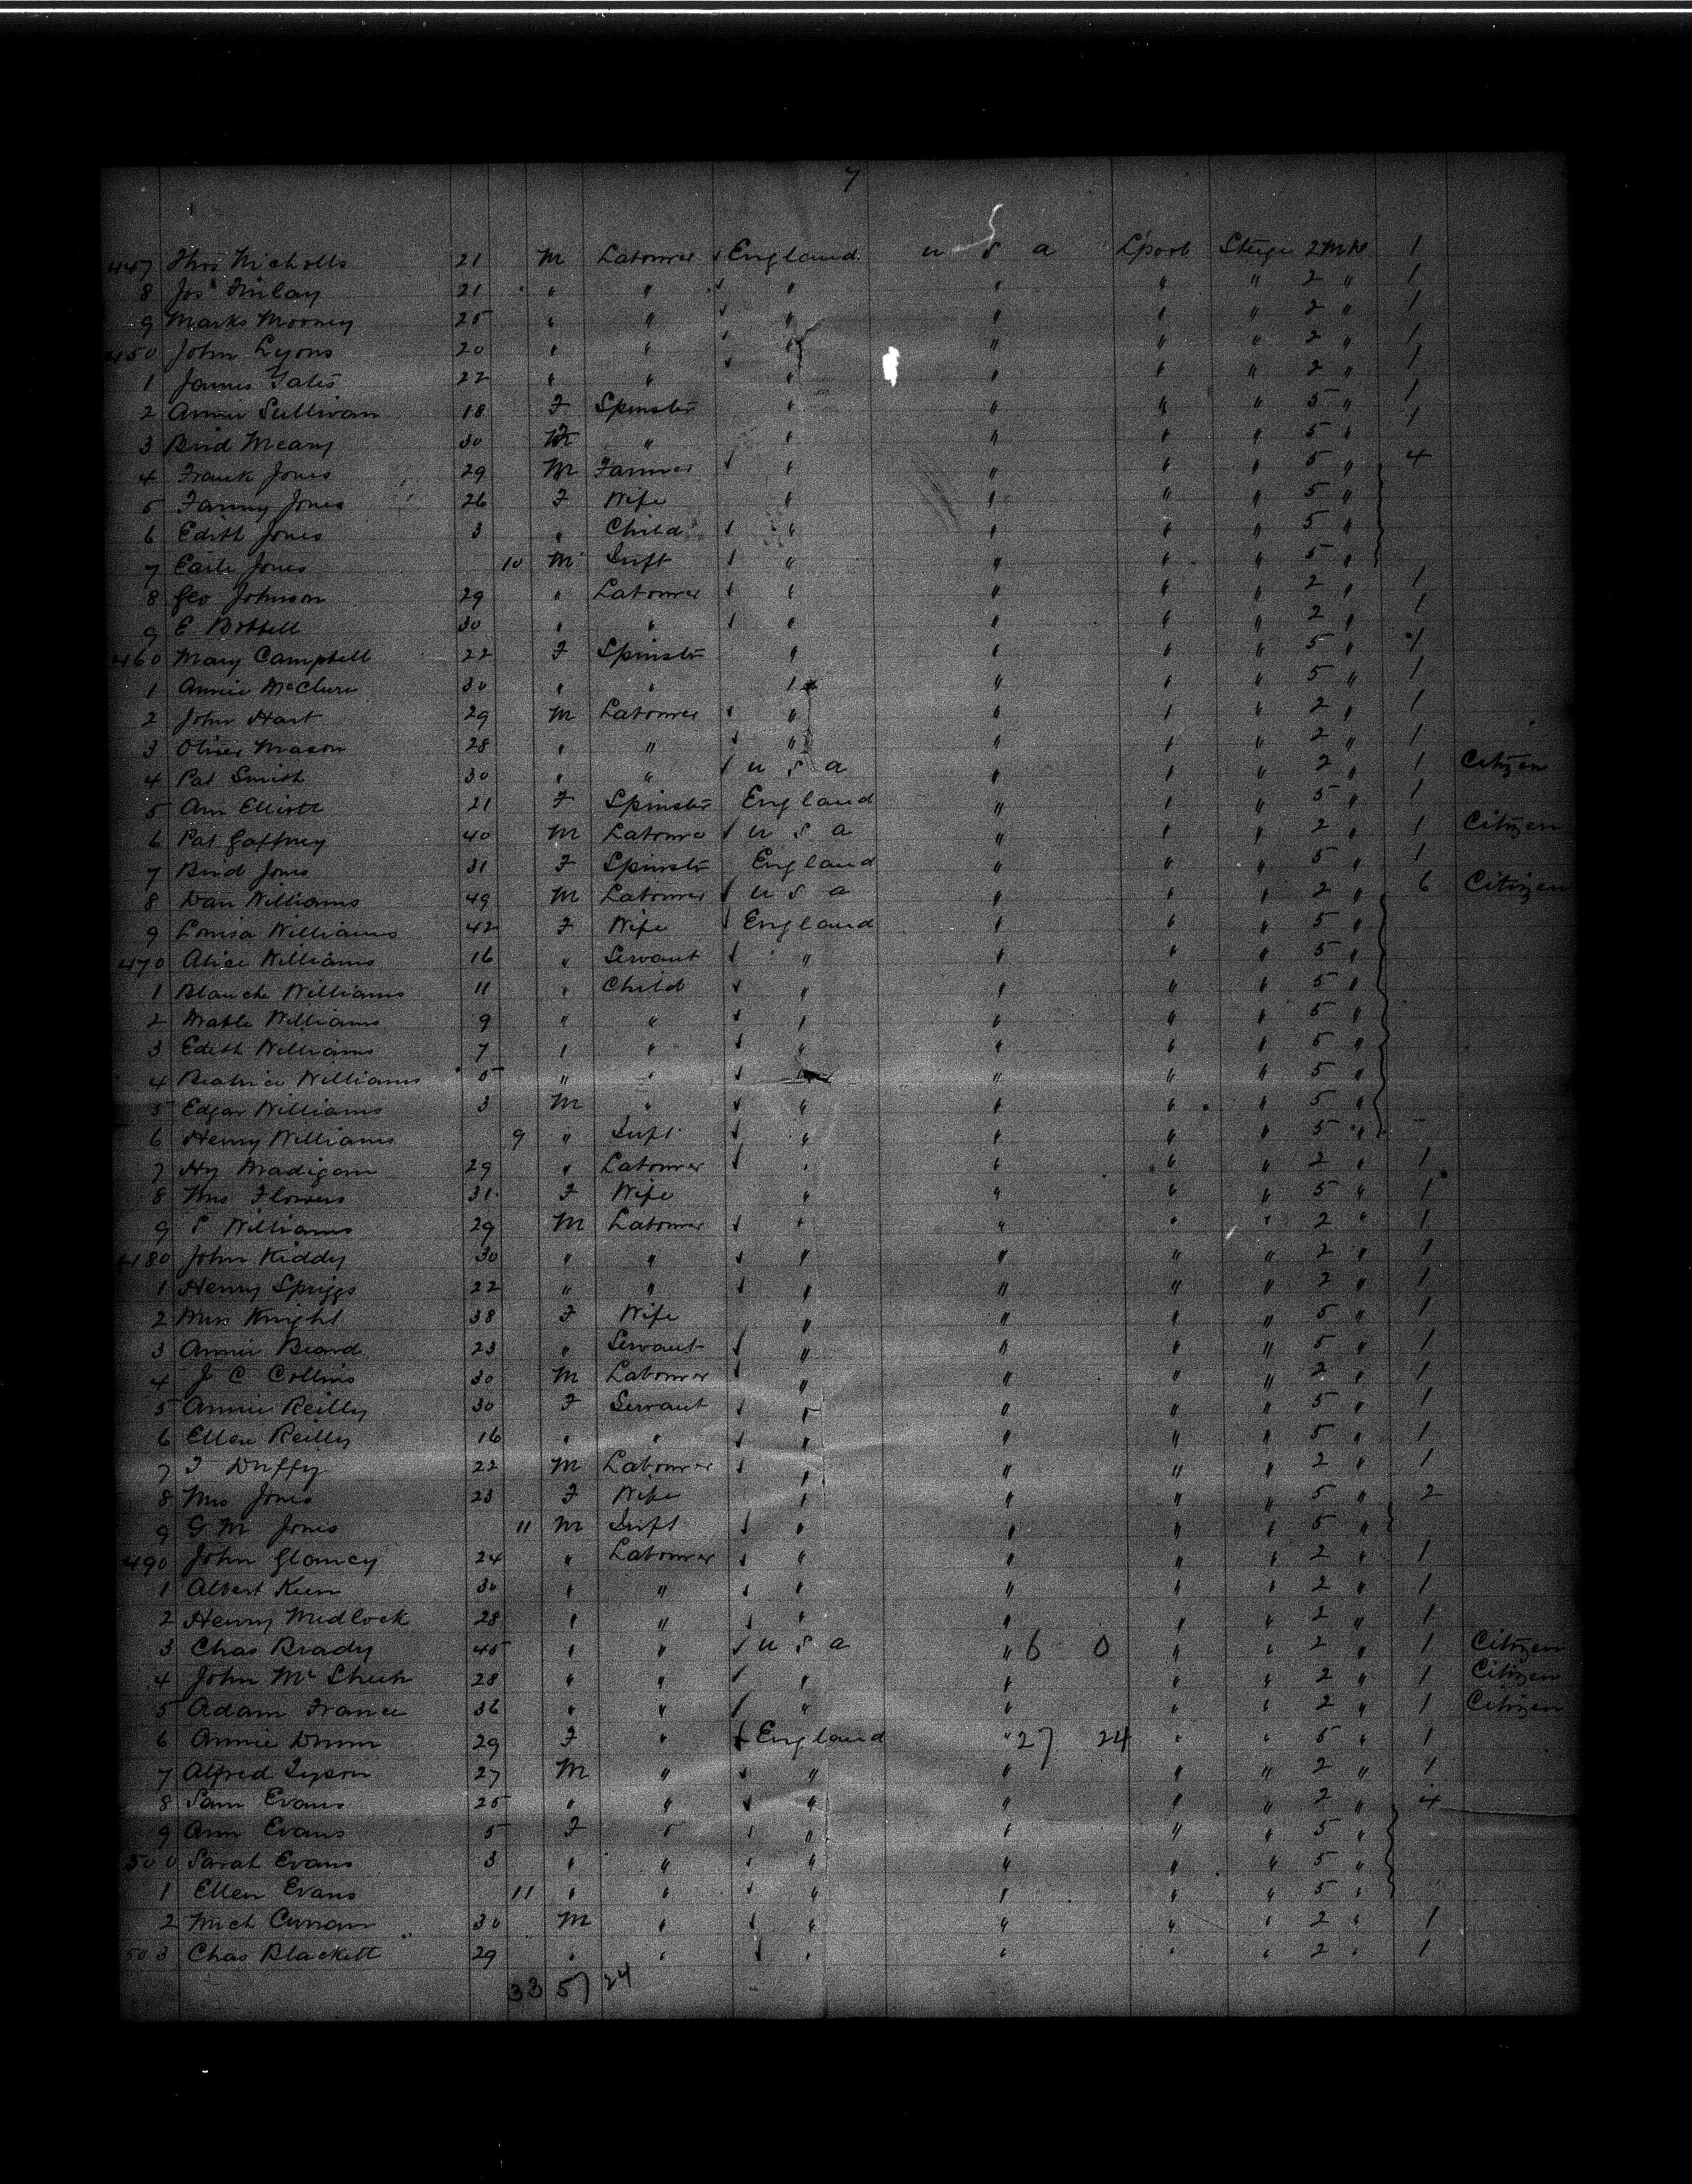 7
447 Thos Nicholls 21 M Labourer England U S A L'pool Steige 2 MW 1
8 Jos Finlay 21 " " " " " " 2 " 1
9 Marks Mooney 25 " " " " " " 2 " 1
450 John Lyons 20 " " " " " " 2 " 1
1 James Yates 22 " " " " " " 2 " 1
2 Annie Sullivan 18 F Spinster " " " " 5 " 1
3 Brid Meany 30 F " " " " " 5 " 1
4 Frank Jones 29 M Farmer " " " " 5 " 4
5 Fanny Jones 26 F Wife " " " " 5 "
6 Edith Jones 3 " Child " " " " 5 "
7 Earle Jones 10 M Inft " " " " 5 "
8 Geo Johnson 29 " Labourer " " " " 2 " 1
9 E 30 " " " " " " 2 " 1
460 Mary Campbell 22 F Spinster " " " " 5 " 1
1 Annie McClure 30 " " " " " " 5 " 1
2 John Hart 29 M Labourer " " " " 2 " 1
3 Oliver Mason 28 " " " " " " 2 " 1
4 Pat Smith 30 " " U S A " " " 2 " 1 Citizen
5 Ann Elliott 21 F Spinster England " " " 5 " 1
6 Pat Gaffney 40 M Labourer U S A " " " 2 " 1 Citizen
7 Brid Jones 31 F Spinster England " " " 5 " 1
8 Dan Williams 49 M Labourer U S A " " " 2 " 6 Citizen
9 Louisa Williams 42 F Wife England " " " 5 "
470 Alice Williams 16 " Servant " " " " 5 "
1 Blanche Williams 11 " Child " " " " 5 "
2 Mable Williams 9 " " " " " " 5 "
3 Edith Williams 7 " " " " " " 5 "
4 Beatrice Williams 5 " " " " " " 5 "
5 Edgar Williams 3 M " " " " " 5 "
6 Henry Williams 9 " Inft " " " " 5 "
7 Hy Madigan 29 " Labourer " " " " 2 " 1
8 Mrs Flowers 31 F Wife " " " " 5 " 1
9 P Williams 29 M Labourer " " " " 2 " 1
480 John Kiddy 30 " " " " " " 2 " 1
1 Henry Spriggs 22 " " " " " " 2 " 1
2 Mrs Knight 38 F Wife " " " " 5 " 1
3 Annie Beard 23 " Servant " " " " 5 " 1
4 J C Collins 30 M Labourer " " " " 2 " 1
5 Annie Reilly 30 F Servant " " " " 5 " 1
6 Ellen Reilly 16 " " " " " " 5 " 1
7 T Duffy 22 M Labourer " " " " 2 " 1
8 Mrs Jones 23 F Wife " " " " 5 " 2
9 G M Jones 11 M Inft " " " " 5 "
490 John Glancy 24 " Labourer " " " " 2 " 1
1 Albert Keen 30 " " " " " " 2 " 1
2 Henry Medlock 28 " " " " " " 2 " 1
3 Chas Brady 45 " " U S A " 6 0 " " 2 " 1 Citizen
4 John 28 " " " " " " 2 " 1 Citizen
5 Adam France 36 " " " " " " 2 " 1 Citizen
6 Annie Dunn 29 F " England " 27 24 " " 5 " 1
7 Alfred Tyson 27 M " " " " " 2 " 1
8 Sam Evans 25 " " " " " " 2 " 4
9 Ann Evans 5 F " " " " " 5 "
500 Sarah Evans 3 " " " " " " 5 "
1 Ellen Evans 11 " " " " " " 5 "
2 Mich Curran 30 M " " " " " 2 " 1
503 Chas Blackett 29 " " " " " " 2 " 1
33 57 24